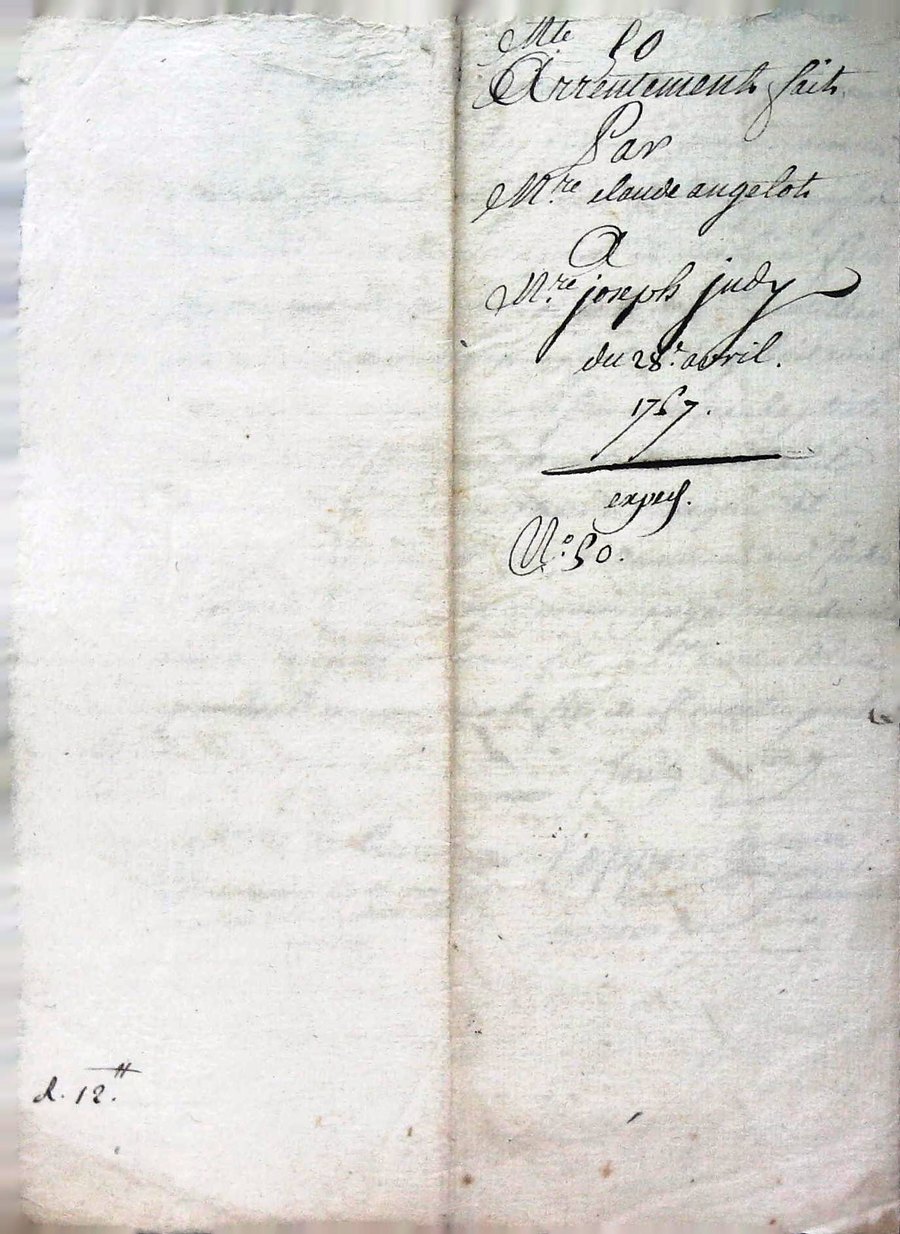 Mte 50
Arrentement fait
Par
Mre claude angelot
A
Mre joseph judy
du 28e avril.
1757.
exped.
No. 50.
d. 12tt